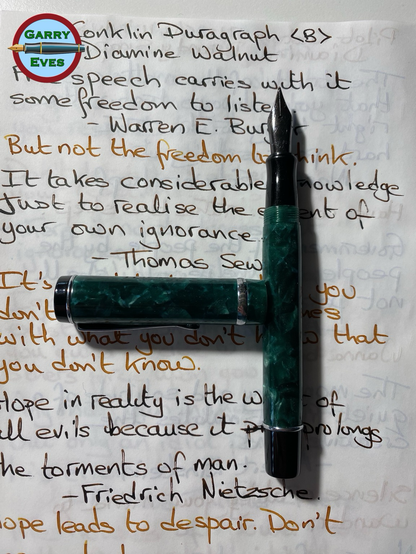 GARRY
EVES
Conklin Duragraph <B>
Diamine Walnut
speech carries with it
some freedom to
- Warren E.
But not the freedom to think.
It takes considerable knowledge
Just to realise the of
your own ignorance
- Thomas
It's you
don't
with what you don't that
you don't know.
Hope in reality is the of
all evils because it prolongs
the torments of man.
- Friedrich Nietzsche.
Hope leads to despair. Don't